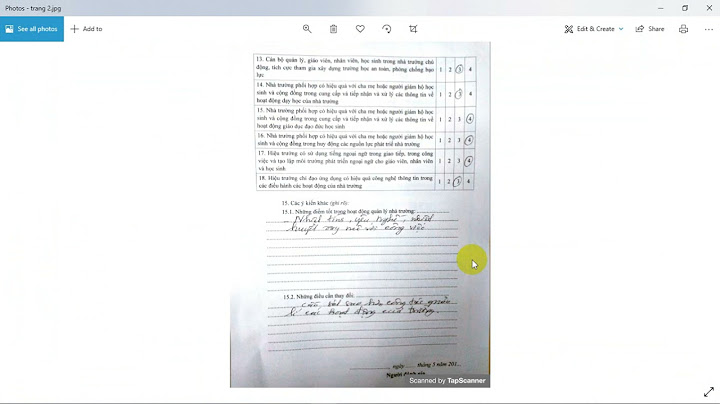 Photos - trang 2.jpg
See all photos
Add to
Edit & Create
Share
13. Cán bộ quản lý, giáo viên, nhân viên, học sinh trong nhà trường chủ
động, tích cực tham gia xây dựng trường học an toàn, phòng chống bạo
lực
1 2 3 4
14. Nhà trường phối hợp có hiệu quả với cha mẹ hoặc người giám hộ học
sinh và cộng đồng trong cung cấp và tiếp nhận và xử lý các thông tin về
hoạt động dạy học của nhà trường
1 2 3 4
15. Nhà trường phối hợp có hiệu quả với cha mẹ hoặc người giám hộ học
sinh và cộng đồng trong cung cấp và tiếp nhận và xử lý các thông tin về
hoạt động giáo dục đạo đức học sinh
1 2 3 4
16. Nhà trường phối hợp có hiệu quả với cha mẹ hoặc người giám hộ học
sinh và cộng đồng trong huy động các nguồn lực phát triển nhà trường
1 2 3 4
17. Hiệu trưởng có sử dụng tiếng ngoại ngữ trong giao tiếp, trong công
việc và tạo lập môi trường phát triển ngoại ngữ cho giáo viên, nhân viên
và học sinh
1 2 3 4
18. Hiệu trưởng chỉ đạo ứng dụng có hiệu quả công nghệ thông tin trong
các điều hành các hoạt động của nhà trường
1 2 3 4
15. Các ý kiến khác (ghi rõ):
15.1. Những điểm tốt trong hoạt động quản lý nhà trường:
- Nhiệt tình, yêu nghề, nhiệt
huyết với công việc
15.2. Những điều cần thay đổi:
cần công tác quản
lí các hoạt động của trường.
ngày tháng 5 năm 201
Người đánh giá
Scanned by TapScanner